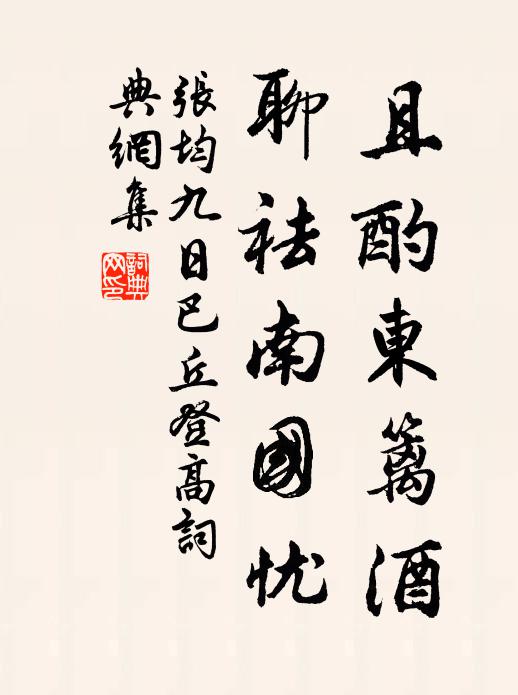 且酌東籬酒
聊祛南國忧
張均九日巴丘登高詞
典網集
詞典网印